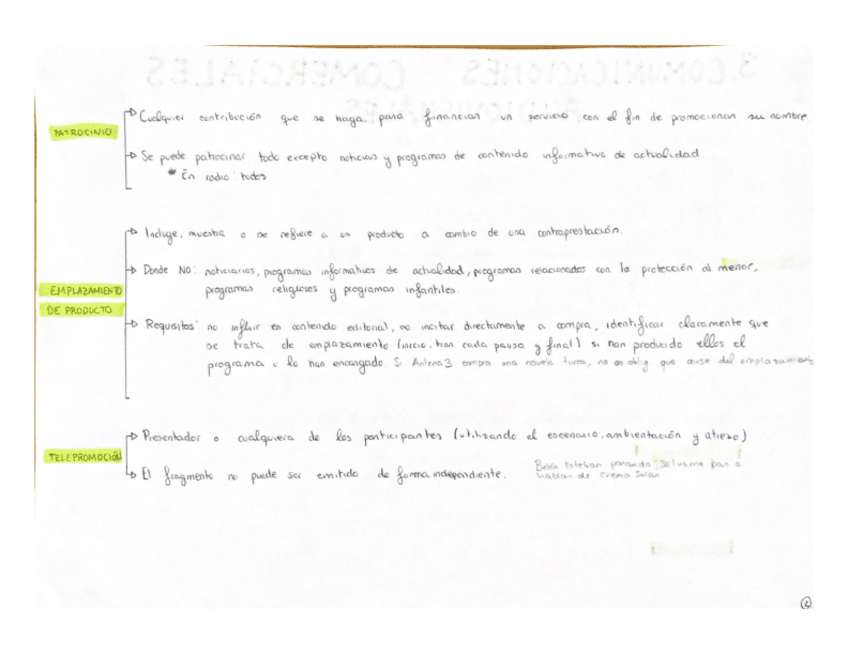 PATROCINIO
Cualquier contribución que se haga para financiar un servicio con el fin de promocionar su nombre
Se puede patrocinar todo excepto noticias y programas de contenido informativo de actualidad
* En radio: todos
EMPLAZAMIENTO
DE PRODUCTO
Incluye, muestra o se refiere a un producto a cambio de una contraprestación.
Donde NO: noticiarios, programas informativos de actualidad, programas relacionados con la protección al menor,
programas religiosos y programas infantiles.
Requisitos: no influir en contenido editorial, no incitar directamente a compra, identificar claramente que
se trata de emplazamiento (inicio, tras cada pausa y final) si han producido ellos el
programa o lo han encargado. Si Antena3 compra una novela turca, no es oblig que avise del emplazamiento
TELEPROMOCIÓN
Presentador o cualquiera de los participantes (utilizando el escenario, ambientación y atrezo)
El fragmento no puede ser emitido de forma independiente.
Belén Esteban parando Sálvame para
hablar de Crema Solar
2